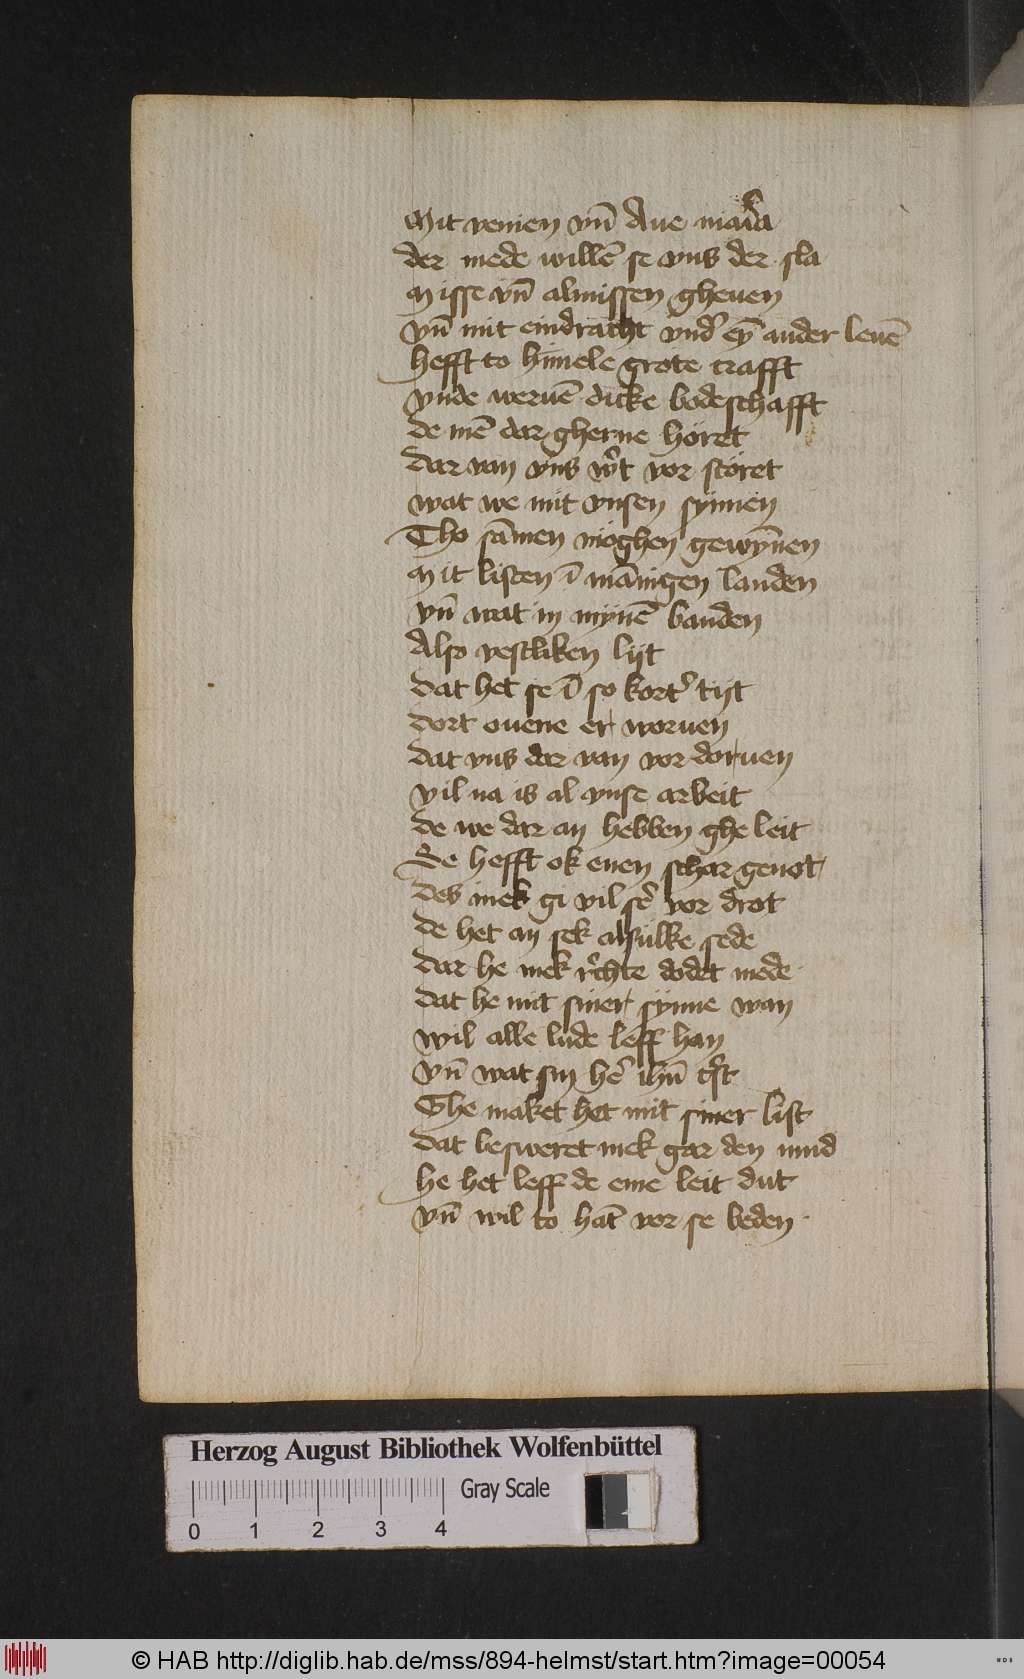 Mit venien vn̄ Aue maria
der mede willē se vns der sla
Misse vn̄ almissen gheuen
vn̄ mit eindracht vnd' ey̅ ander leuē
hefft to himele grote crafft
vnde weruē dicke bodeschafft
de mē dar gherne höret
dar van vns w't vor störet
wat we mit vnsen synnen
Tho sāmen möghen gewyn̄en
Mit listen ī mānigen landen
vn̄ wat in mynē banden
Also vestliken lijt
dat het se ī so kort' tijt
dort ouene er woruen
dat vns dar van vor doruen
vil na is al vnse arbeit
de we dar an hebben ghe leit
Se hefft ok enen schar genot
des mek gi vil s'e vor drot
de het an sek alsulke sede
dar he mek r'chte dodet mede
dat he mit siner synne wan
wil alle lude leff han
vn̄ wat sin h'e ihū c'st
The maket het mit siner list
dat besweret mek gar den mud
he het leff de eme leit dut
vn̄ wil to hāt vor se beden
Herzog August Bibliothek Wolfenbüttel
Gray Scale
0 1 2 3 4
© HAB http://diglib.hab.de/mss/894-helmst/start.htm?image=00054